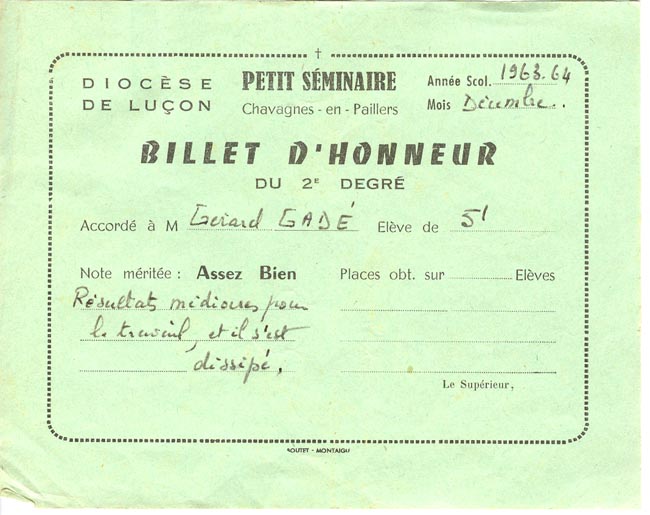 †
DIOCÈSE DE LUÇON
PETIT SÉMINAIRE
Chavagnes-en-Paillers
Année Scol. 1963.64
Mois Décembre.
BILLET D'HONNEUR
DU 2E DEGRÉ
Accordé à M Gérard GADÉ Elève de 5'
Note méritée : Assez Bien
Résultats médiocres pour
le travail, et il s'est
dissipé.
Places obt. sur Elèves
Le Supérieur,
ROUTET - MONTAIGU